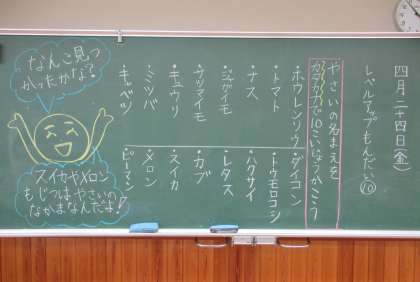 四月二十四日(金)
レベルアップもんだい⑩
やさいの名まえを
カタカナで10こいじょうかこう
・トマト
・ナス
・ジャガイモ
・サツマイモ
・キュウリ
・ミツバ
・キャベツ
ホウレンソウ
・ダイコン
・トウモロコシ
・ハクサイ
・レタス
・カブ
・スイカ
・メロン
・ピーマン
なんこ見つ
かったかな?
スイカやメロン
もじつはやさいの
なかまなんだよ!